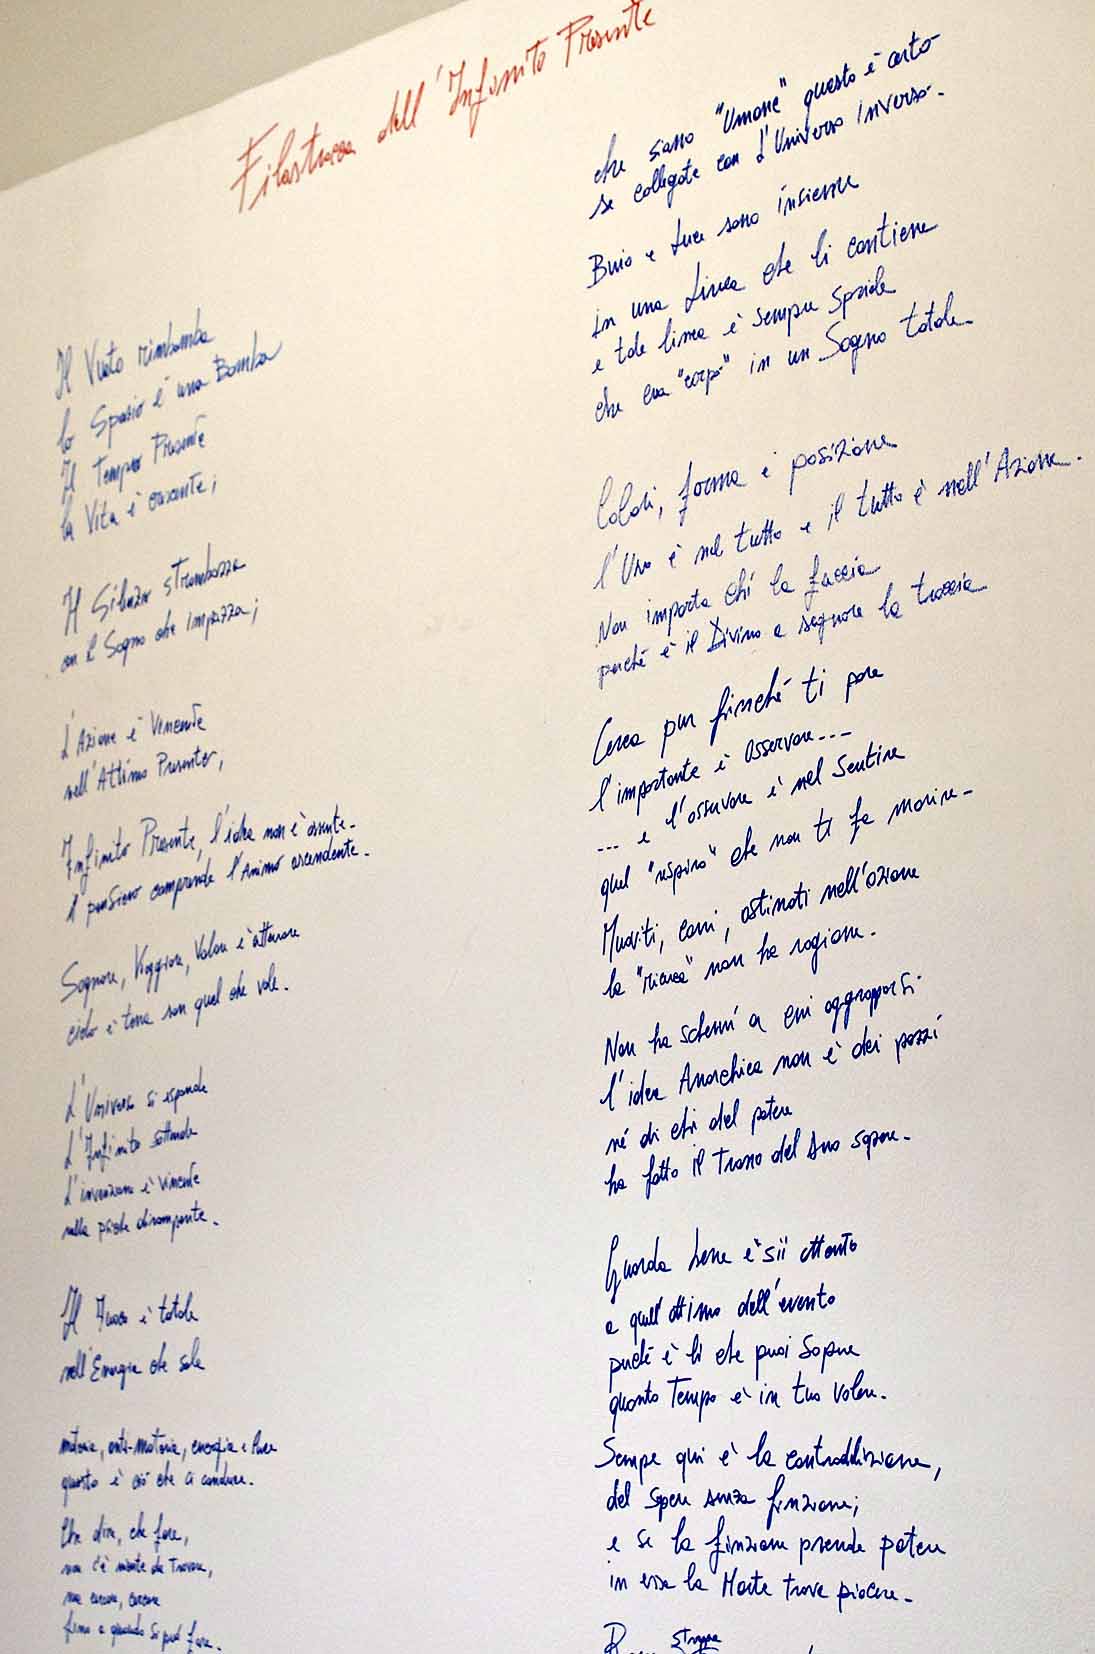 Filastrocca dell'Infinito Presente
Il Vuoto rimbomba
lo Spazio è una Bomba
Il Tempo Presente
la Vita è
Il Silenzio strombazza
con il Sogno che impazza;
L'Azione è Vincente
nell'Attimo Presente,
Infinito Presente, l'idea non è assente.
il pensiero comprende l'Animo ascendente.
Sognare, Viaggiare, Volare è atterrare
cielo e terra son quel che vale.
L'Universo si espande
L'Infinito
L'invenzione è Vincente
nella dirompente.
Il è totale
nell'Energia che sale
materia, anti-materia, energia e luce
questo è ciò che ci conduce.
Che dire, che fare,
non c'è niente da Trovare,
ma cercare, cercare
fino a quando si può fare.
che siano "Umane" questo è certo
se collegate con l'Universo inverso.
Buio e Luce sono insieme
in una Linea che li contiene
e tale linea è sempre spaziale
che crea "corpo" in un Sogno totale.
Colori, forma e posizione
l'Uno è nel tutto e il tutto è nell'Azione.
Non importa chi la faccia
perché è il Divino a segnare la traccia
Cerca pur finché ti pare
l'importante è osservare---
--- e l'osservare è nel Sentire
quel "respiro" che non ti fa morire.
Muoviti, corri, ostinati nell'azione
la "ricerca" non ha ragione.
Non ha schemi a cui aggrapparsi
l'idea Anarchica non è dei pazzi
né di chi del potere
ha fatto il Trono del suo sapere.
Guarda bene e sii attento
a quell'attimo dell'evento
perché è lì che puoi Sapere
quanto Tempo è in tuo Volere.
Sempre qui è la contraddizione,
del sapere senza finzione;
e se la finzione prende potere
in essa la Morte trova piacere.